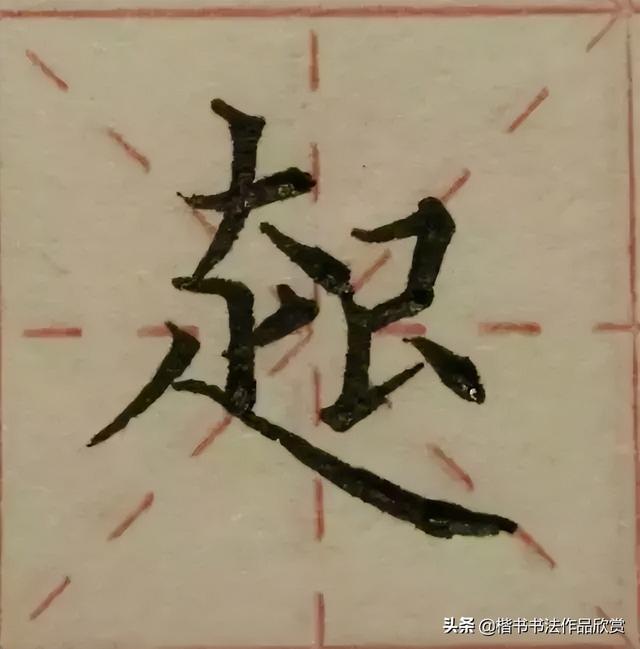 起
头条 @楷书书法作品欣赏